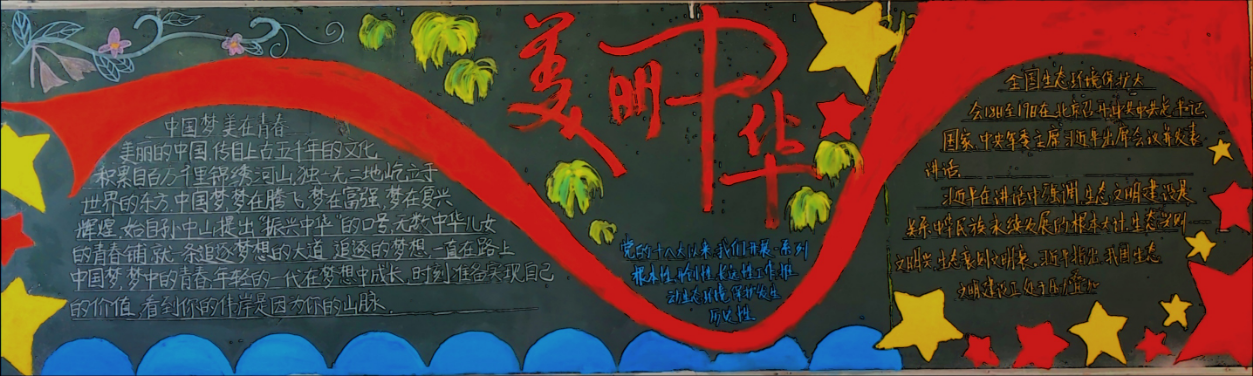 美丽中华
中国梦美在青春
美丽的中国,传自上古五千年的文化
积累自百万千里锦绣河山,独一无二地屹立于
世界的东方,中国梦,梦在腾飞,梦在富强,梦在复兴
辉煌,始自孙中山提出"振兴中华"的口号,无数中华儿女
的青春铺就一条追逐梦想的大道,追逐的梦想,一直在路上
中国梦,梦中的青春,年轻的一代在梦想中成长,时刻准备实现自己
的价值,看到你的伟岸是因为你的山脉.
党的十八大以来,我们开展一系列
根本性、开创性、长远性工作,推
动生态环境保护发生
历史性
全国生态环境保护大
会18日至19日在北京召开
国家 中央军委主席 习近平出席会议并发表
讲话.
习近平在讲话中强调,生态文明建设是
关系中华民族永续发展的根本大计.生态兴则
文明兴,生态衰则文明衰.习近平指出,我国生态
文明建设